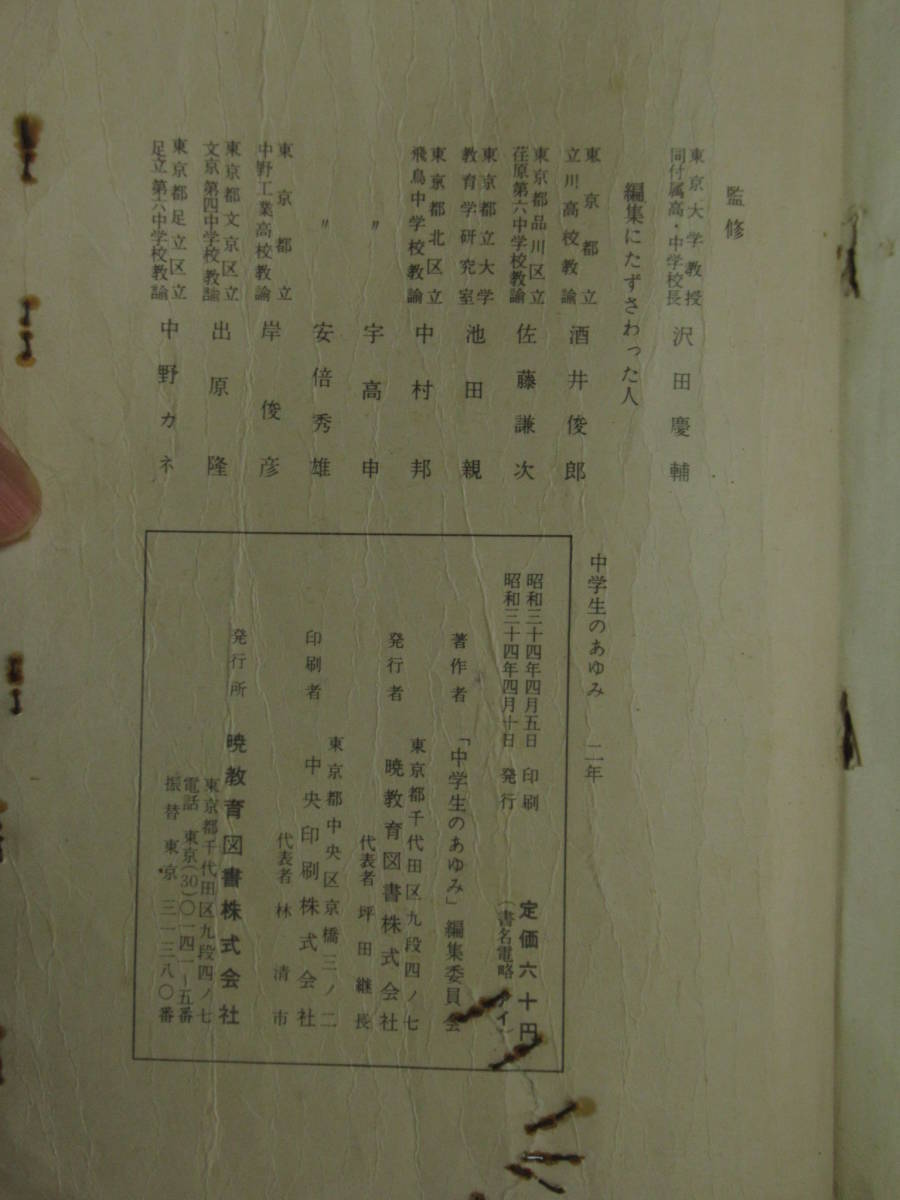 監修
東京大学教授
同付属高・中学校長
沢田慶輔
編集にたずさわった人
東京都立
立川高校教諭
酒井俊郎
東京都品川区立
荏原第六中学校教諭
佐藤謙次
東京都立大学
教育学研究室
池田親
東京都北区立
飛鳥中学校教諭
中村邦
〃
宇高申
〃
安倍秀雄
東京都立
中野工業高校教諭
岸俊彦
東京都文京区立
文京第四中学校教諭
出原隆
東京都足立区立
足立第十六中学校教諭
中野カネ
中学生のあゆみ 二年
昭和三十四年四月五日 印刷
昭和三十四年四月十日 発行
定価六十円
(書名電略 アイ)
著作者 「中学生のあゆみ」編集委員会
東京都千代田区九段四ノ七
発行者 暁教育図書株式会社
代表者 坪田継長
東京都中央区京橋三ノ二
印刷者 中央印刷株式会社
代表者 林清市
発行所 暁教育図書株式会社
東京都千代田区九段四ノ七
電話 東京(30)〇一四一-五番
振替 東京 三一三八〇番